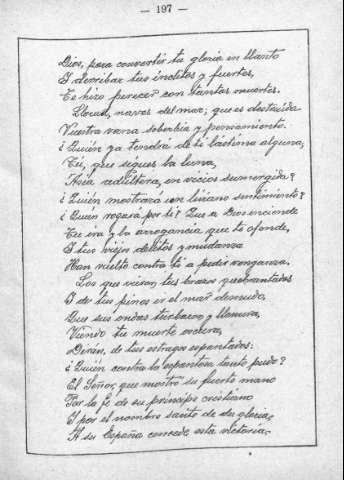 — 197 —
Dios, para convertir tu gloria en llanto
I derribar tus ínclitos y fuertes,
Te hizo perecer con tantas muertes.
Llorad, naves del mar; que es destruida
Vuestra vana soberbia y pensamiento.
¿Quién ya tendrá de ti lástima alguna,
Tú, que sigues la luna,
Asia adúltera, en vicios sumergida?
¿Quién mostrará un liviano sentimiento?
¿Quién rogará por ti? Que a Dios enciende
Tu ira y la arrogancia que te ofende,
I tus viejos delitos y mudanza
Han vuelto contra ti a pedir venganza.
Los que vieron tus brazos quebrantados
I de tus pinos ir el mar desnudo,
Que sus ondas turbaron y llanura,
Viendo tu muerte oscura,
Dirán, de tus estragos espantados:
¿Quién contra la espantosa tanto pudo?
El Señor, que mostró su fuerte mano
Por la fe de su príncipe cristiano
I por el nombre santo de su gloria,
A su España concede esta victoria.